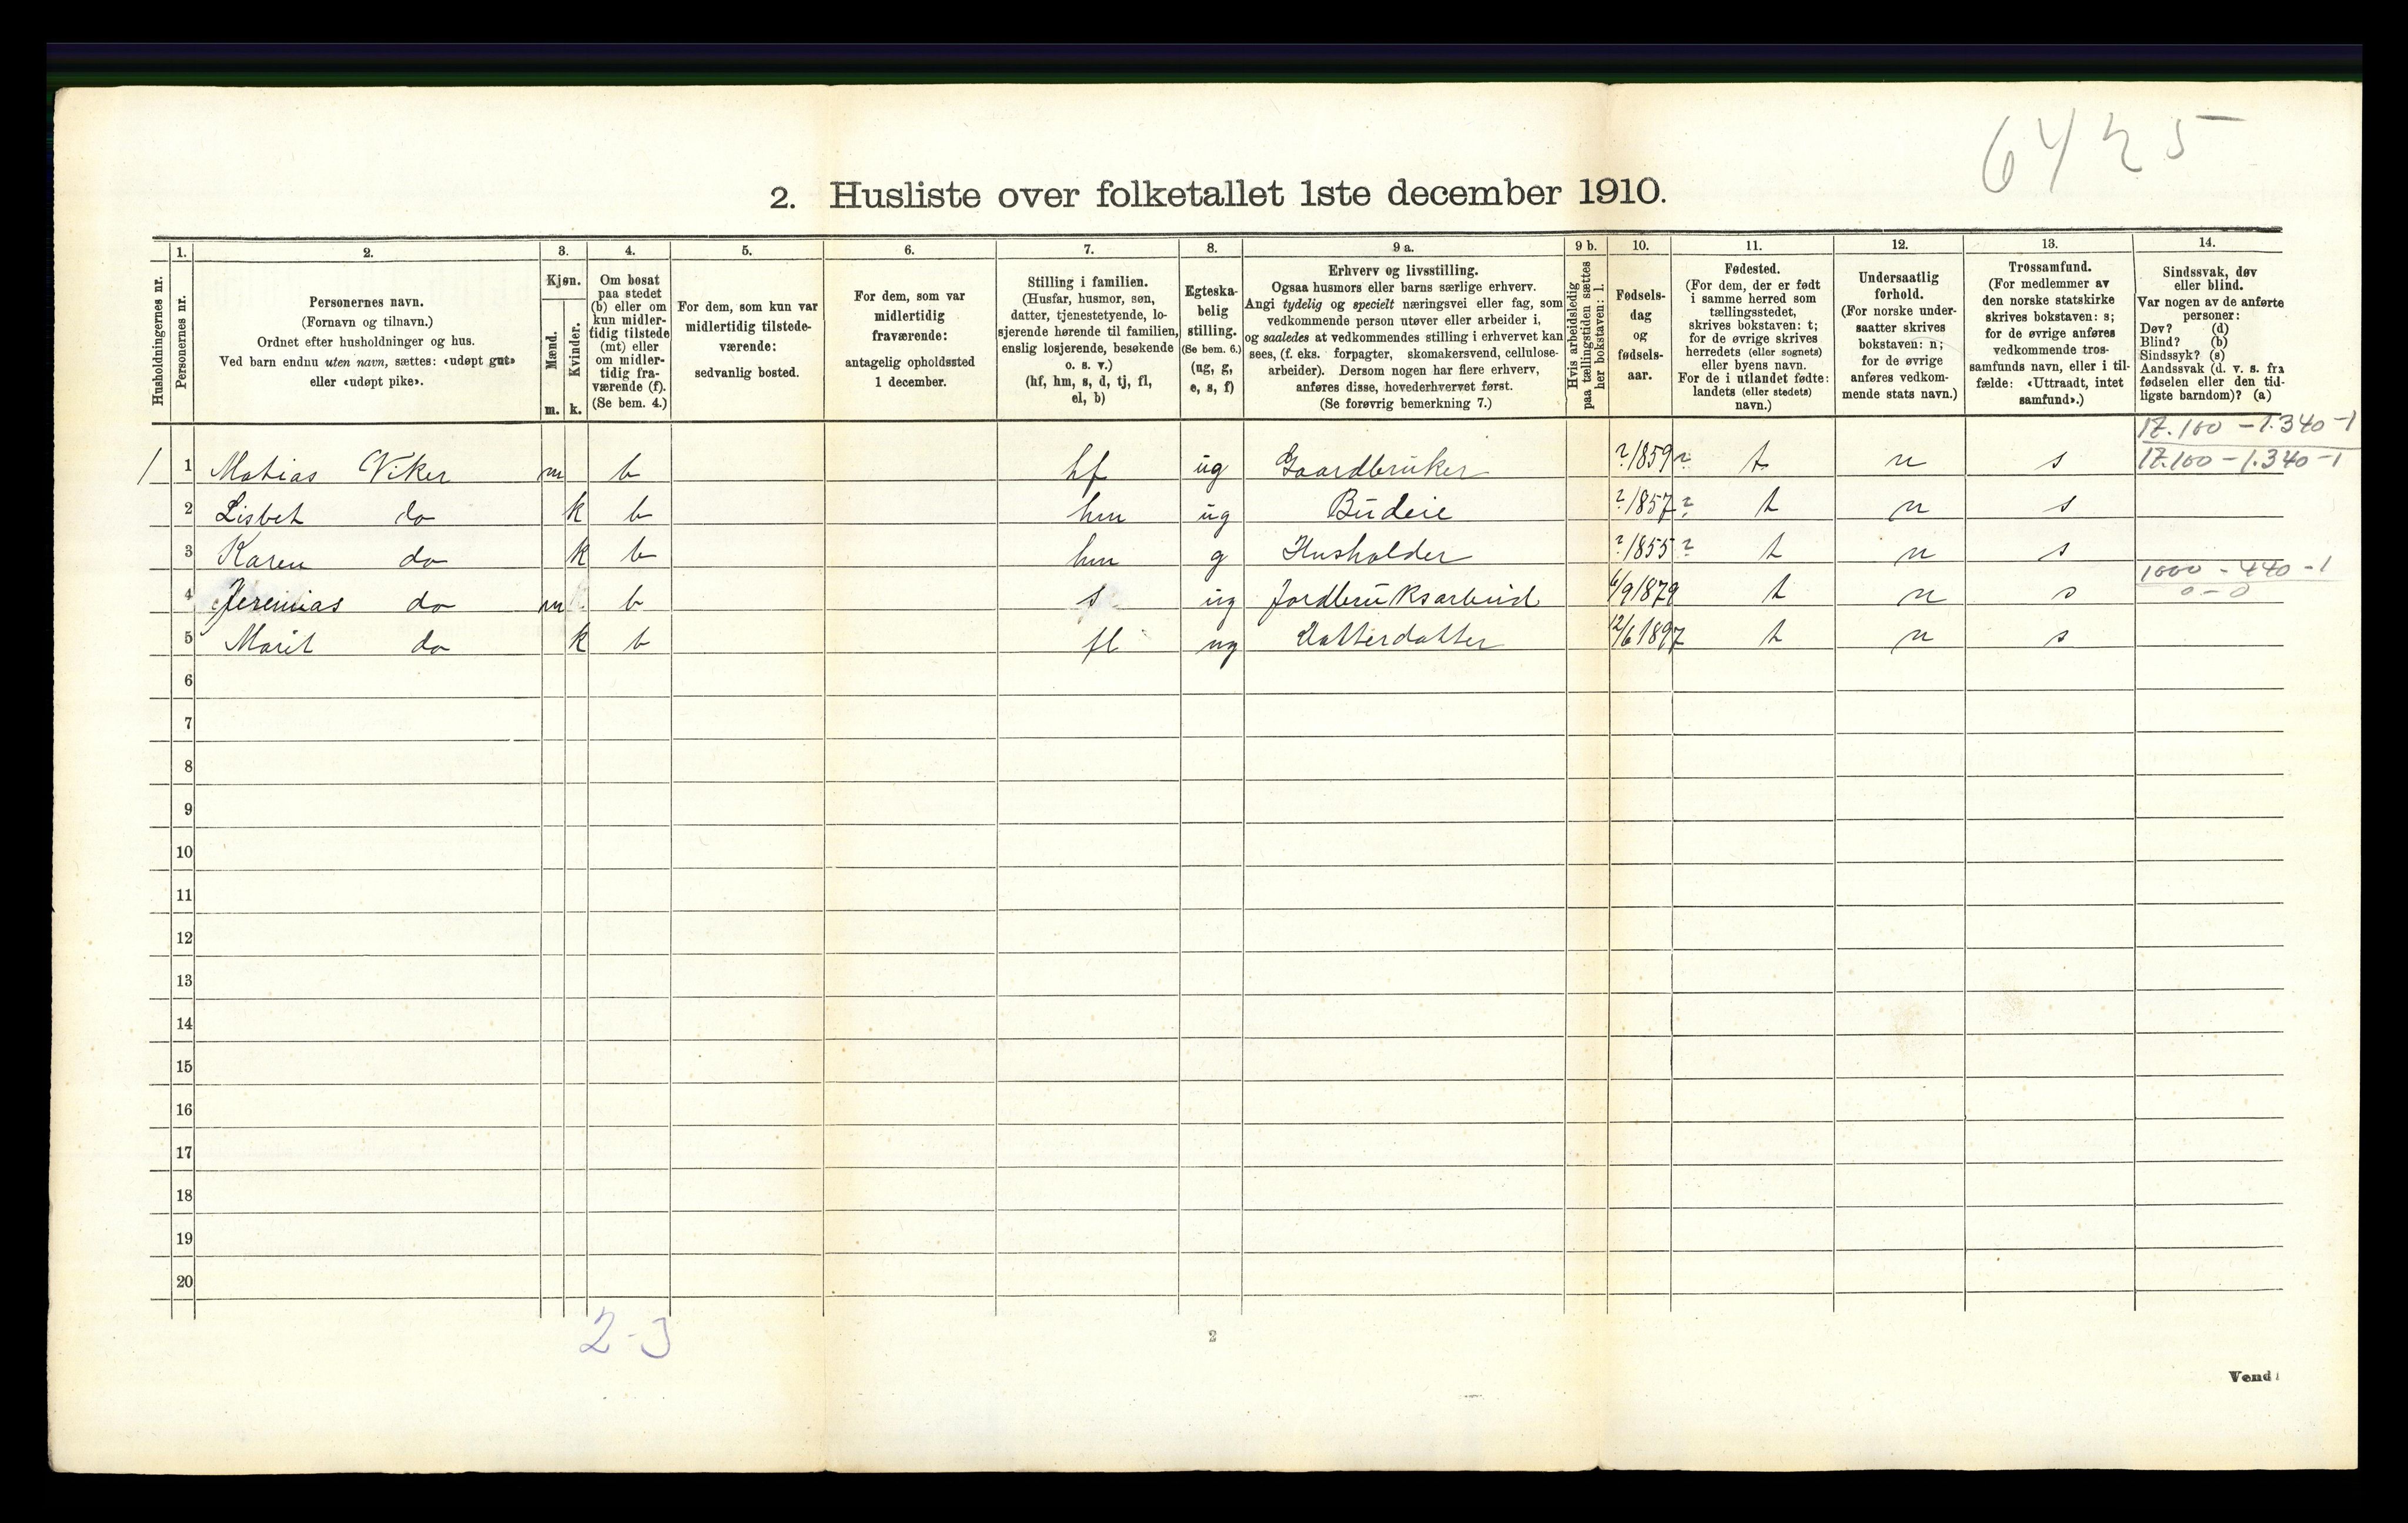 6425
2. Husliste over folketallet 1ste december 1910.
Husholdningernes nr.
1.
Personernes nr.
2.
Personernes navn.
(Fornavn og tilnavn.)
Ordnet efter husholdninger og hus.
Ved barn endnu uten navn, sættes: «udøpt gut»
eller «udøpt pike».
3.
Kjøn.
Mænd.
Kvinder.
m. k.
4.
Om bosat
paa stedet
(b) eller om
kun midler-
tidig tilstede
(mt) eller
om midler-
tidig fra-
værende (f).
(Se bem. 4.)
5.
For dem, som kun var
midlertidig tilstede-
værende:
sedvanlig bosted.
6.
For dem, som var
midlertidig
fraværende:
antagelig opholdssted
1 december.
7.
Stilling i familien.
(Husfar, husmor, søn,
datter, tjenestetyende, lo-
sjerende hørende til familien,
enslig losjerende, besøkende
o. s. v.)
(hf, hm, s, d, tj, fl,
el, b)
8.
Egteska-
belig
stilling.
(Se bem. 6.)
(ug, g,
e, s, f)
9 a.
Erhverv og livsstilling.
Ogsaa husmors eller barns særlige erhverv.
Angi tydelig og specielt næringsvei eller fag, som
vedkommende person utøver eller arbeider i,
og saaledes at vedkommendes stilling i erhvervet kan
sees, (f. eks. forpagter, skomakersvend, cellulose-
arbeider). Dersom nogen har flere erhverv,
anføres disse, hovederhvervet først.
(Se forøvrig bemerkning 7.)
9 b.
Hvis arbeidsledig
paa tællingstiden sættes
her bokstaven: l.
10.
Fødsels-
dag
og
fødsels-
aar.
11.
Fødested.
(For dem, der er født
i samme herred som
tællingsstedet,
skrives bokstaven: t;
for de øvrige skrives
herredets (eller sognets)
eller byens navn.
For de i utlandet fødte:
landets (eller stedets)
navn.)
12.
Undersaatlig
forhold.
(For norske under-
saatter skrives
bokstaven: n;
for de øvrige
anføres vedkom-
mende stats navn.)
13.
Trossamfund.
(For medlemmer av
den norske statskirke
skrives bokstaven: s;
for de øvrige anføres
vedkommende tros-
samfunds navn, eller i til-
fælde: «Uttraadt, intet
samfund».)
14.
Sindssvak, døv
eller blind.
Var nogen av de anførte
personer:
Døv? (d)
Blind? (b)
Sindssyk? (s)
Aandssvak (d. v. s. fra
fødselen eller den tid-
ligste barndom)? (a)
17.100 - 1.340 - 1
1 1 Matias Viker m b hf ug Gaardbruker ?/1859? t n s 17.100 - 1.340 - 1
2 Lisbet do k b hm ug Budeie ?/1857? t n s
3 Karen do k b hm g Husholder ?/1855? t n s
1000 - 440 - 1
4 Jeremias do m b s ug Jordbruksarbeid 6/9 1879 t n s 0 - 0
5 Marit do k b fl ug Datterdatter 12/6 1897 t n s
6
7
8
9
10
11
12
13
14
15
16
17
18
19
20
2-3
2
Vend!